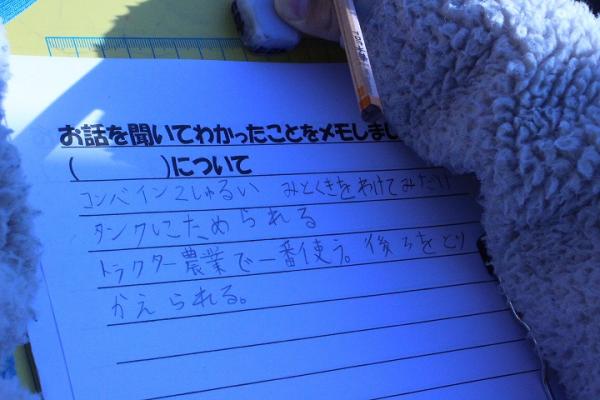 お話を聞いてわかったことをメモしまし
(　　　)について
コンバイン2しゅるい みとくきをわけてみたい
タンクにためられる
トラクター農業で一番使う。後ろをとり
かえられる。